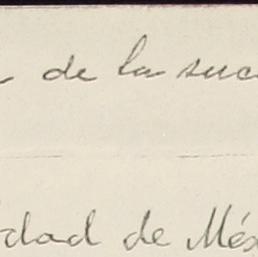 de la suc
idad de Méx